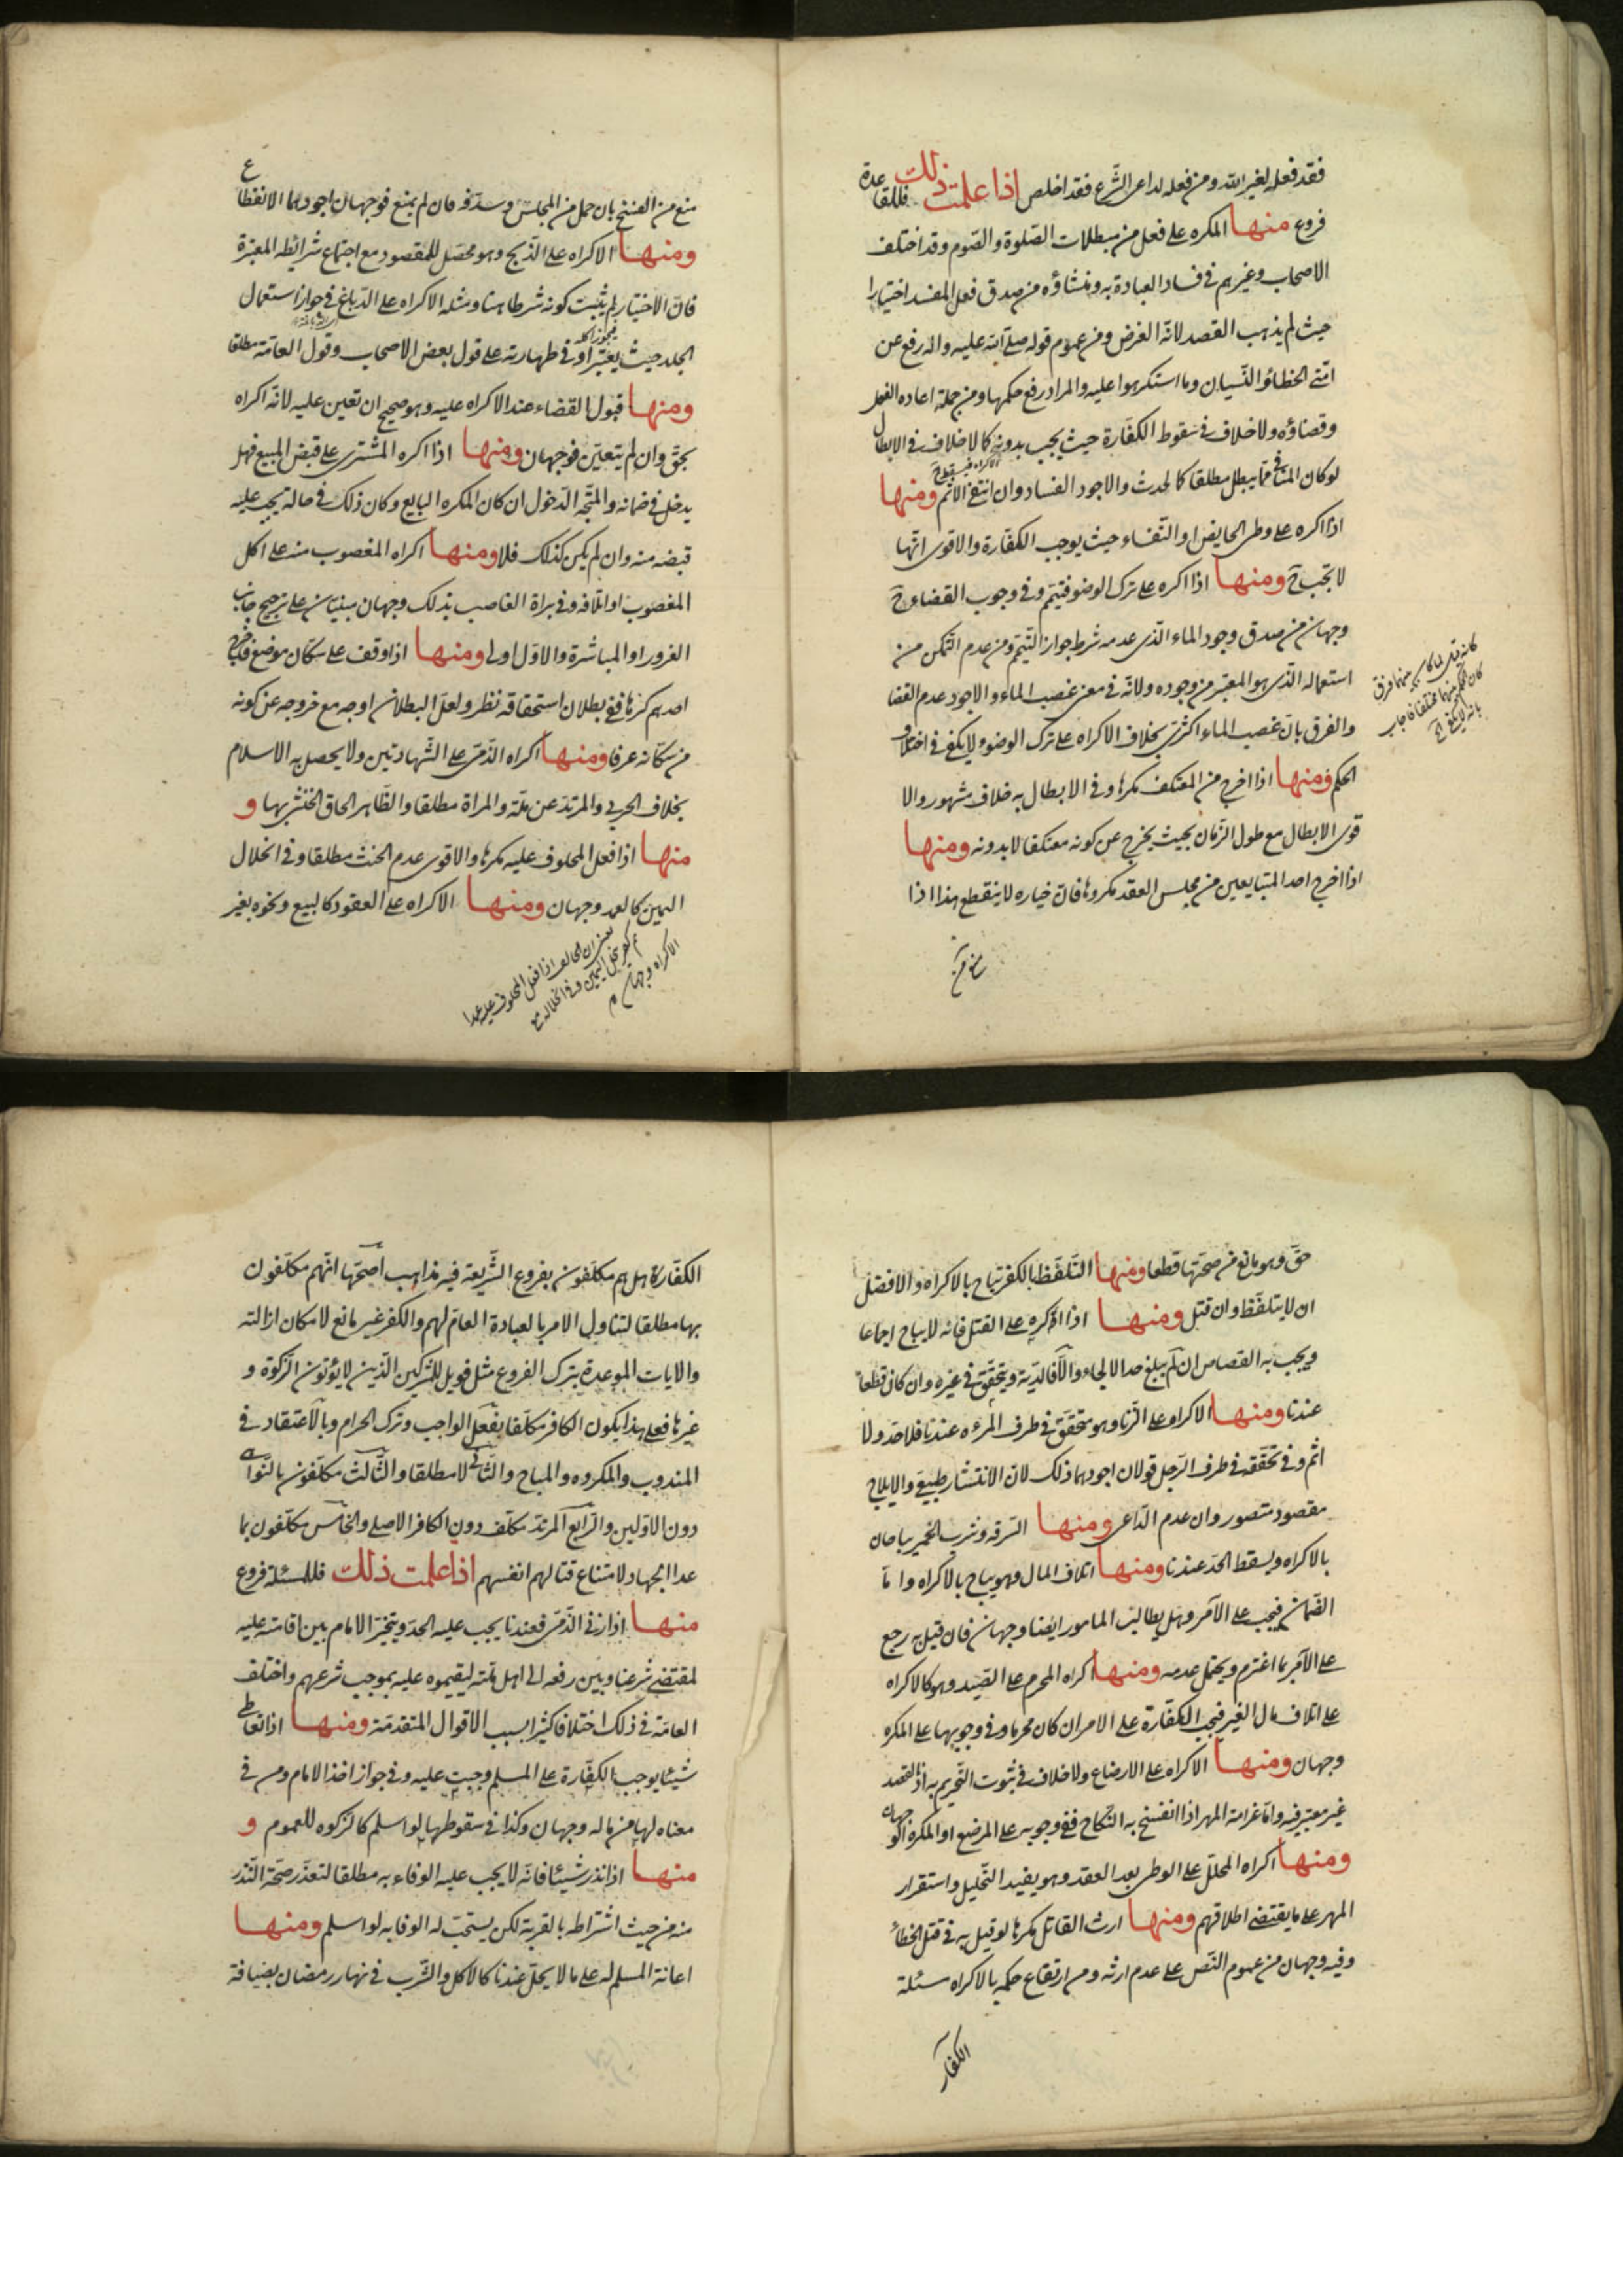 فقد فعله لغير الله ومن فعله لداعي الشرع فقد اخلص اذا علمت ذلك فللقاعدة
فروع منها المكره على فعل من مبطلات الصلوة والصوم وقد اختلف
الاصحاب وغيرهم في فساد العبادة به ومنشاؤه من صدق فعل المفسد اختيارا
حيث لم يذهب القصد لانه الغرض ومن عموم قوله صلى الله عليه واله رفع عن
امتي الخطاء والنسيان وما استكرهوا عليه والمراد رفع حكمها ومن جملته اعاده الفعل
وقضاؤه ولا خلاف في سقوط الكفارة حيث يجب بدونه كالاخلاف في الابطال
لو كان المنافي مما يبطل مطلقا كالحدث والاجود الفساد وان انتفى الاثم ومنها
اذا اكره على وطى الحايض او النفساء حيث يوجب الكفارة والاقوى انها
لا تجب ح ومنها اذا اكره على ترك الوضوء فتيمم وفي وجوب القضاء ح
وجهان من صدق وجود الماء الذى عدمه شرط جواز التيمم ومن عدم التمكن من
استعماله الذى هو المعتبر من وجوده ولانه في معنى غصب الماء والاجود عدم القضا
والفرق بان غصب الماء اكثرى بخلاف الاكراه على ترك الوضوء لا يكفى في اختلاف
الحكم ومنها اذا اخرج من المعتكف مكرها وفي الابطال به خلاف مشهور والا
قوى الابطال مع طول الزمان بحيث يخرج عن كونه معتكفا لا بدونه ومنها
اذا اخرج احد المتبايعين من مجلس العقد مكروها فان خياره لا ينقطع هذا اذا
منع من الفسخ بان حمل من المجلس وسد فه فان لم يمنع فوجهان اجودهما الانقطاع
ومنها الاكراه على الذبح وهو محصل للمقصود مع اجتماع شرائطه المعتبرة
فان الاختيار لم يثبت كونه شرطا هنا ومثله الاكراه على الدباغ في جواز استعمال
الجلد حيث يعتبر او في طهارته على قول بعض الاصحاب وقول العامة مطلقا
ومنها قبول القضاء عند الاكراه عليه وهو صحيح ان تعين عليه لانه اكراه
بحق وان لم يتعين فوجهان ومنها اذا اكره المشترى على قبض المبيع فهل
يدخل في ضمانه والمتجه الدخول ان كان المكره البايع وكان ذلك في حالة يجب عليه
قبضه منه وان لم يكن كذلك فلا ومنها اكراه المغصوب منه على اكل
المغصوب او اتلافه وفي براة الغاصب بذلك وجهان مبنيان على ترجيح جانب
الغرور او المباشرة والاول اولى ومنها اذا وقف على سكان موضع فاخرج
احدهم كرها ففى بطلان استحقاقه نظر ولعل البطلان اوجه مع خروجه عن كونه
من سكانه عرفا ومنها اكراه الذمى على الشهادتين ولا يحصل به الاسلام
بخلاف الحربى والمرتد عن ملة والمراة مطلقا والظاهر الحاق الخنثى بها و
منها اذا فعل المحلوف عليه مكرها والاقوى عدم الحنث مطلقا وفي انحلال
اليمين كالعمد وجهان ومنها الاكراه على العقود كالبيع ونحوه بغير
حق وهو مانع من صحتها قطعا ومنها التلفظ بالكفر فيباح بالاكراه والافضل
ان لا يتلفظ وان قتل ومنها اذا اكره على القتل فانه لا يباح اجماعا
ويجب به القصاص ان لم يبلغ حد الالجاء والا فالدية ويتحقق في غيره وان كان قطعا
عندنا ومنها الاكراه على الزنا وهو متحقق في طرف المرءه عندنا فلا حد ولا
اثم وفي تحققه في طرف الرجل قولان اجودهما ذلك لان الانتشار طبيعى والايلاج
مقصود متصور وان عدم الداعى ومنها السرقة وشرب الخمر يباحان
بالاكراه ويسقط الحد عندنا ومنها اتلاف المال فهو يباح بالاكراه واما
الضمان فيجب على الآمر وهل يطالب المامور ايضا وجهان فان قيل به رجع
على الآمر بما اغترم ويحتمل عدمه ومنها اكراه المحرم على الصيد وهو كالاكراه
على اتلاف مال الغير فتجب الكفارة على الامر ان كان محرما وفي وجوبها على المكره
وجهان ومنها الاكراه على الارضاع ولا خلاف في ثبوت التحريم به اذ القصد
غير معتبر فيه واما غرامة المهر اذا انفسخ به النكاح ففى وجوبه على المرضع او المكره الوجهان
ومنها اكراه المحلل على الوطى بعد العقد وهو يفيد التحليل واستقرار
المهر على ما يقتضى اطلاقهم ومنها ارث القاتل مكرها لو قيل به في قتل الخطأ
وفيه وجهان من عموم النص على عدم ارثه ومن ارتفاع حكمه بالاكراه مسئلة
الكفار
الكفار هل هم مكلفون بفروع الشريعة فيه مذاهب اصحها انهم مكلفون
بها مطلقا لتناول الامر بالعبادة العام لهم والكفر غير مانع لامكان ازالته
والايات الموعدة بترك الفروع مثل فويل للمشركين الذين لا يؤتون الزكوة و
غيرها فعلى هذا يكون الكافر مكلفا بفعل الواجب وترك الحرام وبالاعتقاد في
المندوب والمكروه والمباح والثانى لا مطلقا والثالث مكلفون بالنواهى
دون الاولين والرابع المرتد مكلف دون الكافر الاصلى والخامس مكلفون بما
عدا الجهاد لامتناع قتالهم انفسهم اذا علمت ذلك فللمسئلة فروع
منها اذا زنى الذمى فعندنا يجب عليه الحد ويتخير الامام بين اقامته عليه
لمقتضى شرعنا وبين رفعه الى اهل ملته ليقيموه عليه بموجب شرعهم واختلف
العامة في ذلك اختلافا كثيرا بسبب الاقوال المتقدمة ومنها اذا تعاطى
شيئا يوجب الكفارة على المسلم وجبت عليه وفي جواز اخذ الامام ومن في
معناه لها من ماله وجهان وكذا في سقوطها لو اسلم كالزكوه للعموم و
منها اذا نذر شيئا فانه لا يجب عليه الوفاء به مطلقا لتعذر صحة النذر
منه من حيث اشتراطه بالقربة لكن يستحب له الوفا به لو اسلم ومنها
اعانة المسلم له على ما لا يحل عندنا كالاكل والشرب في نهار رمضان بضيافة